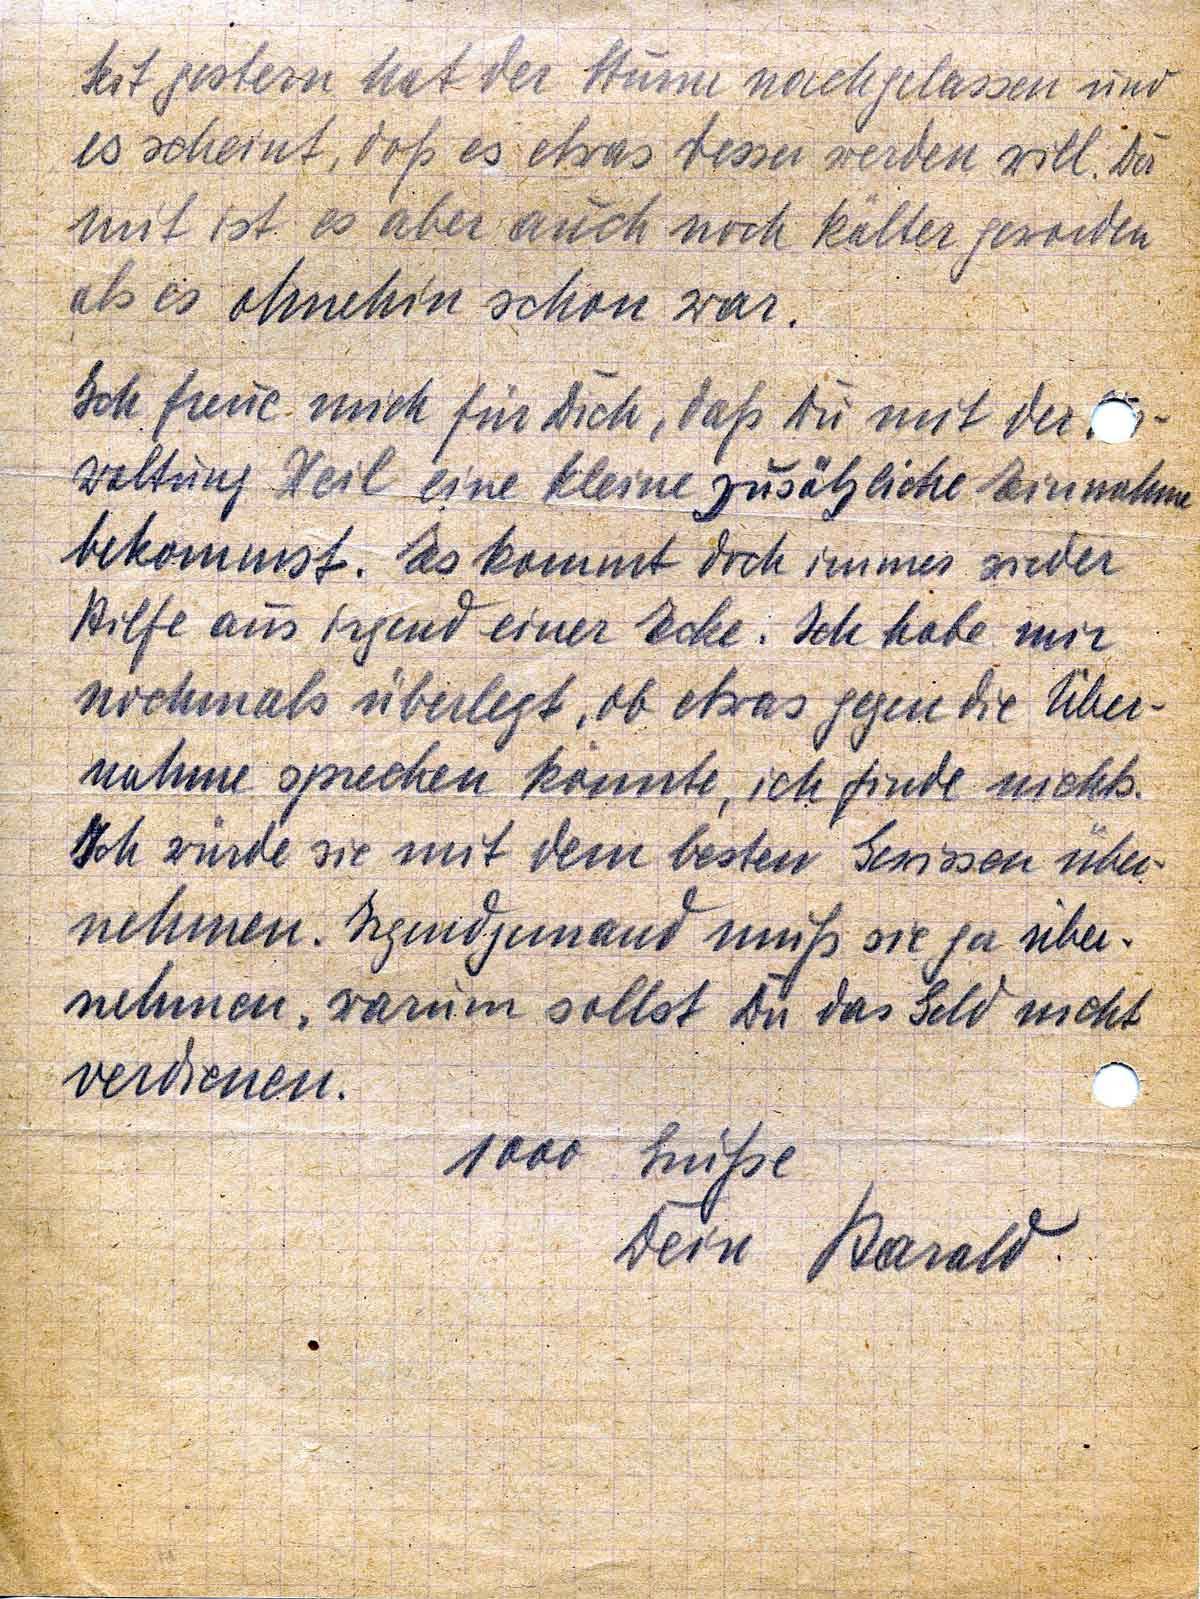 Seit gestern hat der Sturm nachgelassen und
es scheint, daß es etwas besser werden will. Da
mit ist es aber auch noch kälter geworden
als es ohnehin schon war.
Ich freue mich für Dich, daß Du mit der
waltung Heil eine kleine zusätzliche Einnahme
bekommst. Es kommt doch immer wieder
Hilfe aus irgend einer Ecke. Ich habe mir
nochmals überlegt, ob etwas gegen die Über-
nahme sprechen könnte, ich finde nichts.
Ich würde sie mit dem besten Gewissen über-
nehmen. Irgendjemand muß sie ja über-
nehmen, warum sollst Du das Geld nicht
verdienen.
1000 Grüße
Dein Harald.